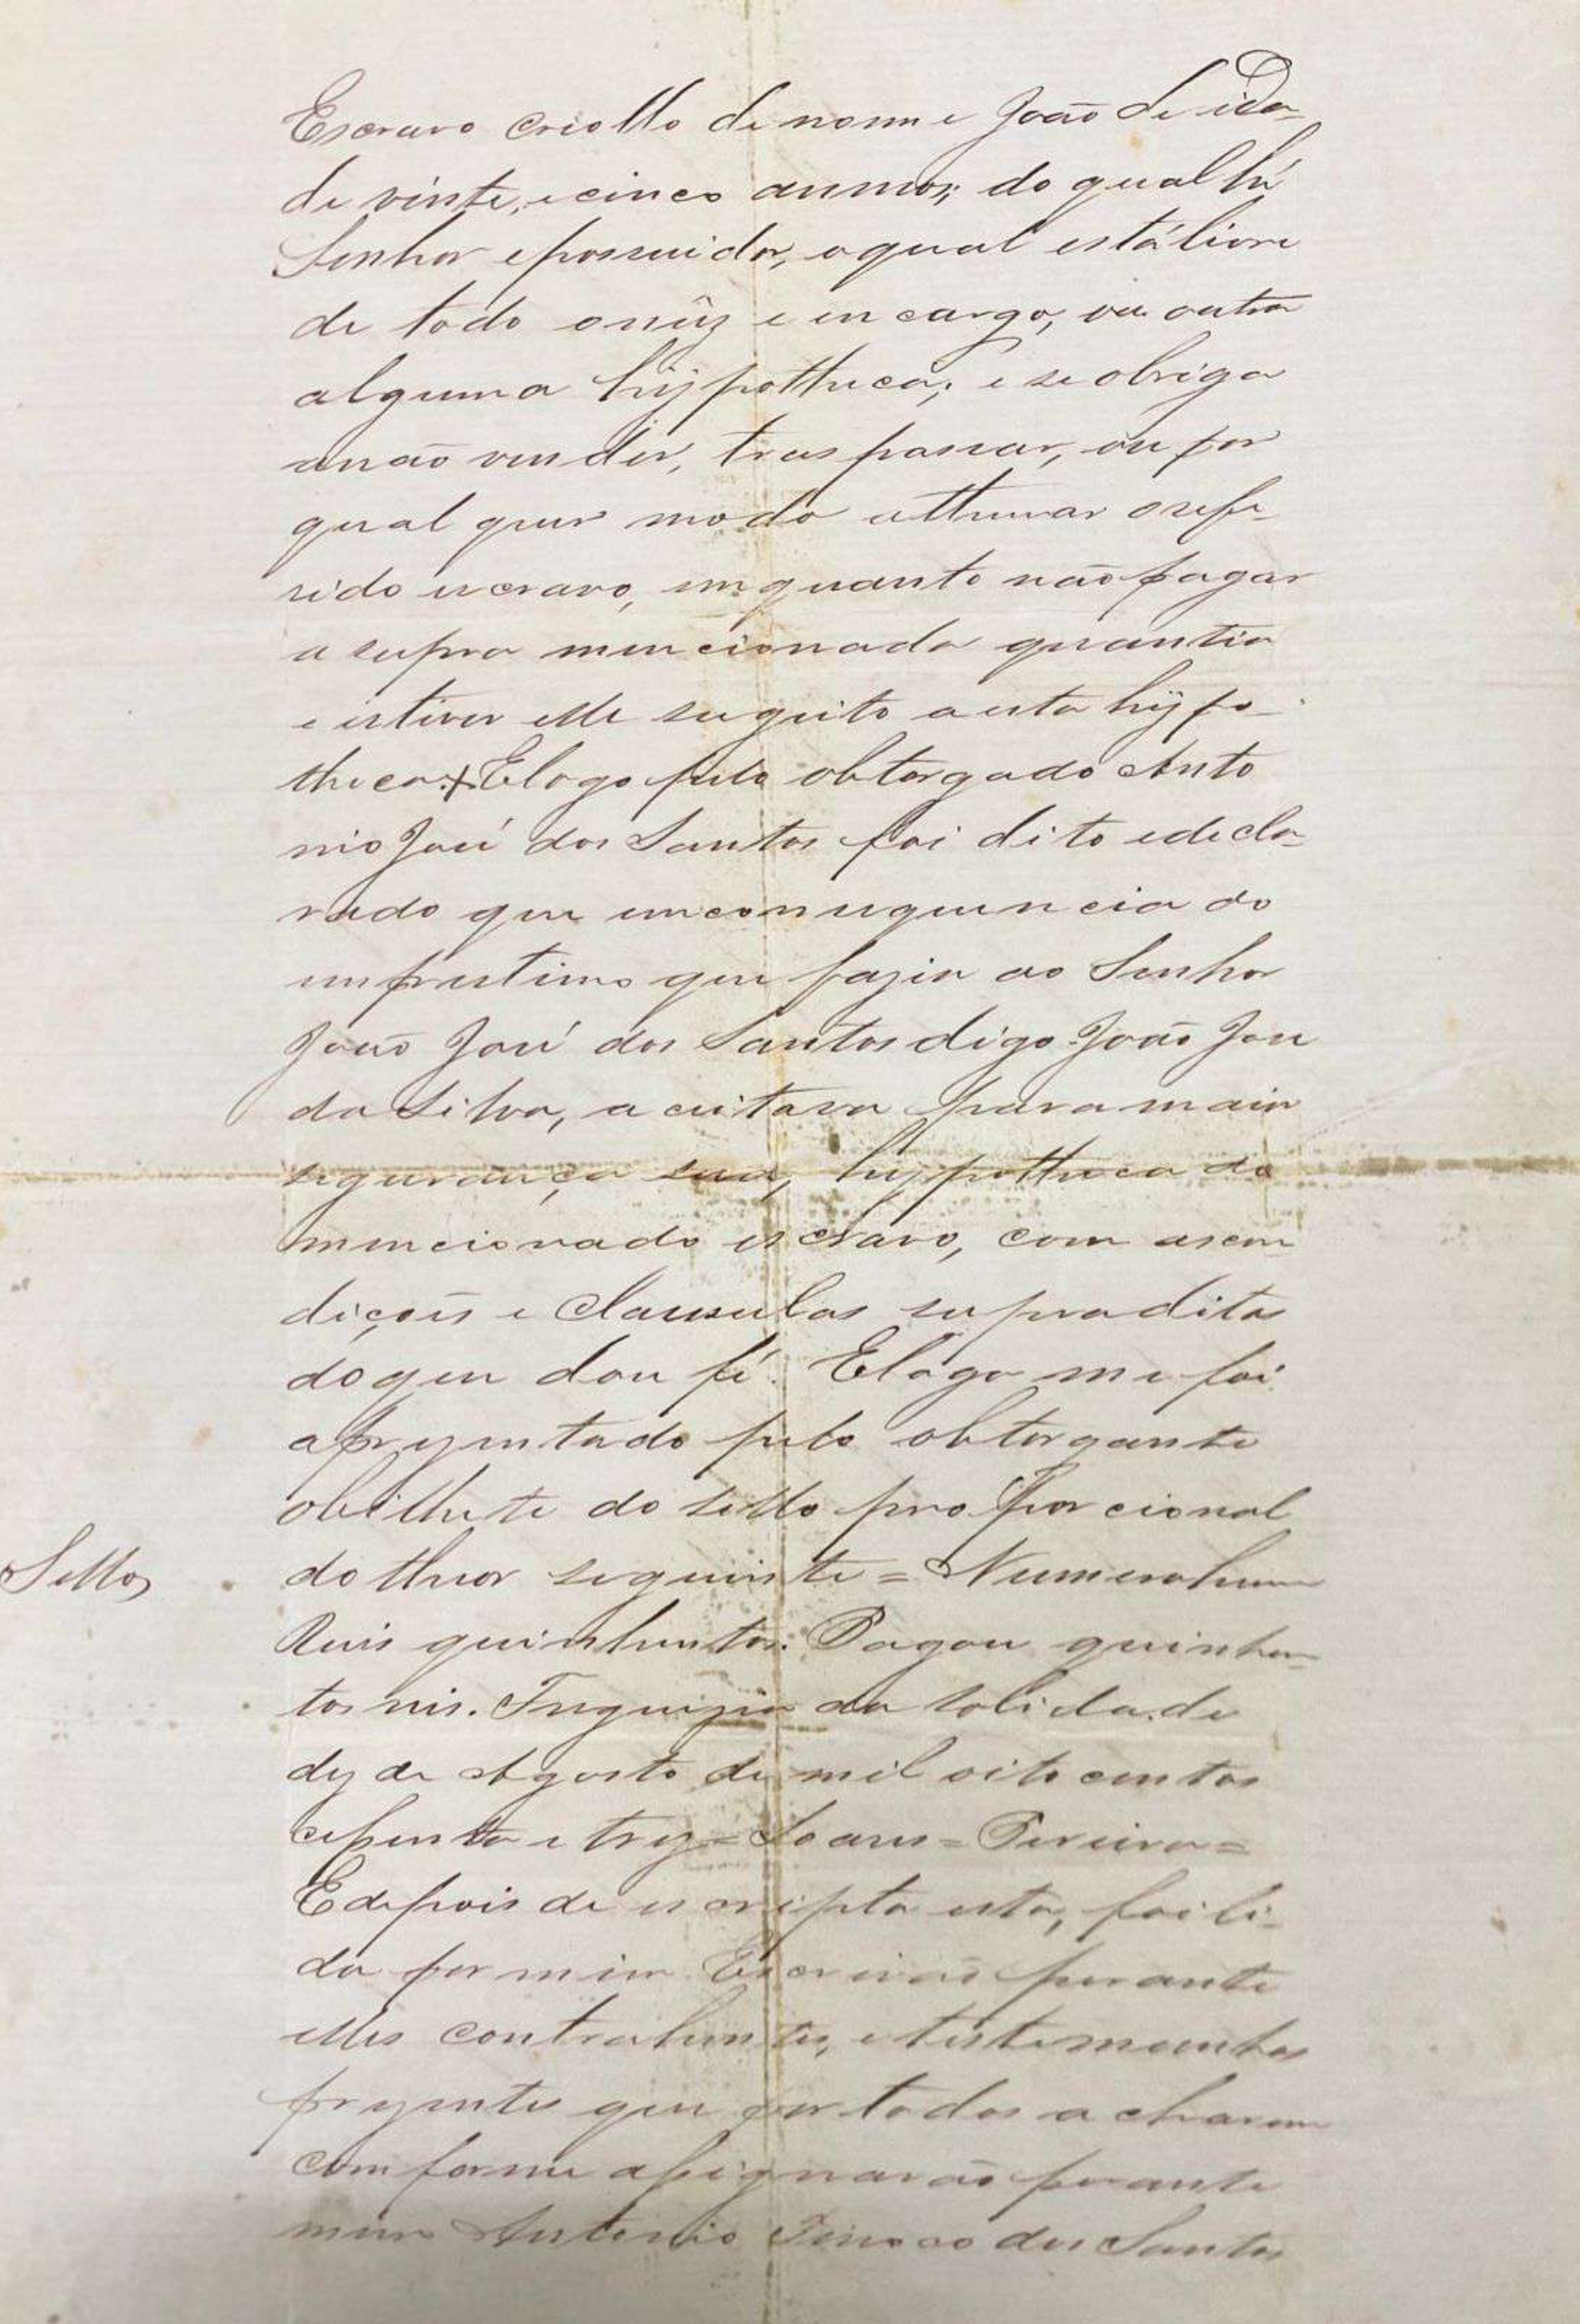 Escravo criollo de nome João de ida-
de vinte, e cinco annos; do qual hé
Senhor e possuidor, o qual está livre
de todo onûs e encargo, ou outra
alguma hypotheca; e se obriga
a não vender, traspassar, ou por
qual quer modo athenar o refe-
rido escravo, em quanto não pagar
a supra mencionada quantia
e estiver elle sugeito a esta hypo-
theca + E logo pelo obtorgado Anto
nio José dos Santos foi dito e decla-
rado que em consequencia do
emprestimo que fazia ao Senhor
João José dos Santos digo João Jose
da Silva, aceitava para maior
segurança sua, hypotheca do
mencionado escravo, com as con
diçoês e Clausulas supraditas
do que dou fé. E logo me foi
aprezentado pelo obtorgante
o bilhete do sello proporcional
Sello do theor seguinte = Numero hum
Reis quinhentos: Pagou quinhen-
tos reis. Freguizia da Solidade
dez de Agosto de mil oito centos
cessenta e trez = Soares = Pereira =
E depois de escripta esta, foi li-
da por mim Escrivão perante
elles contrahentes, e testemunhas
prezentes que por todos acharem
conforme assignarão perante
mim Antonio dos Santos